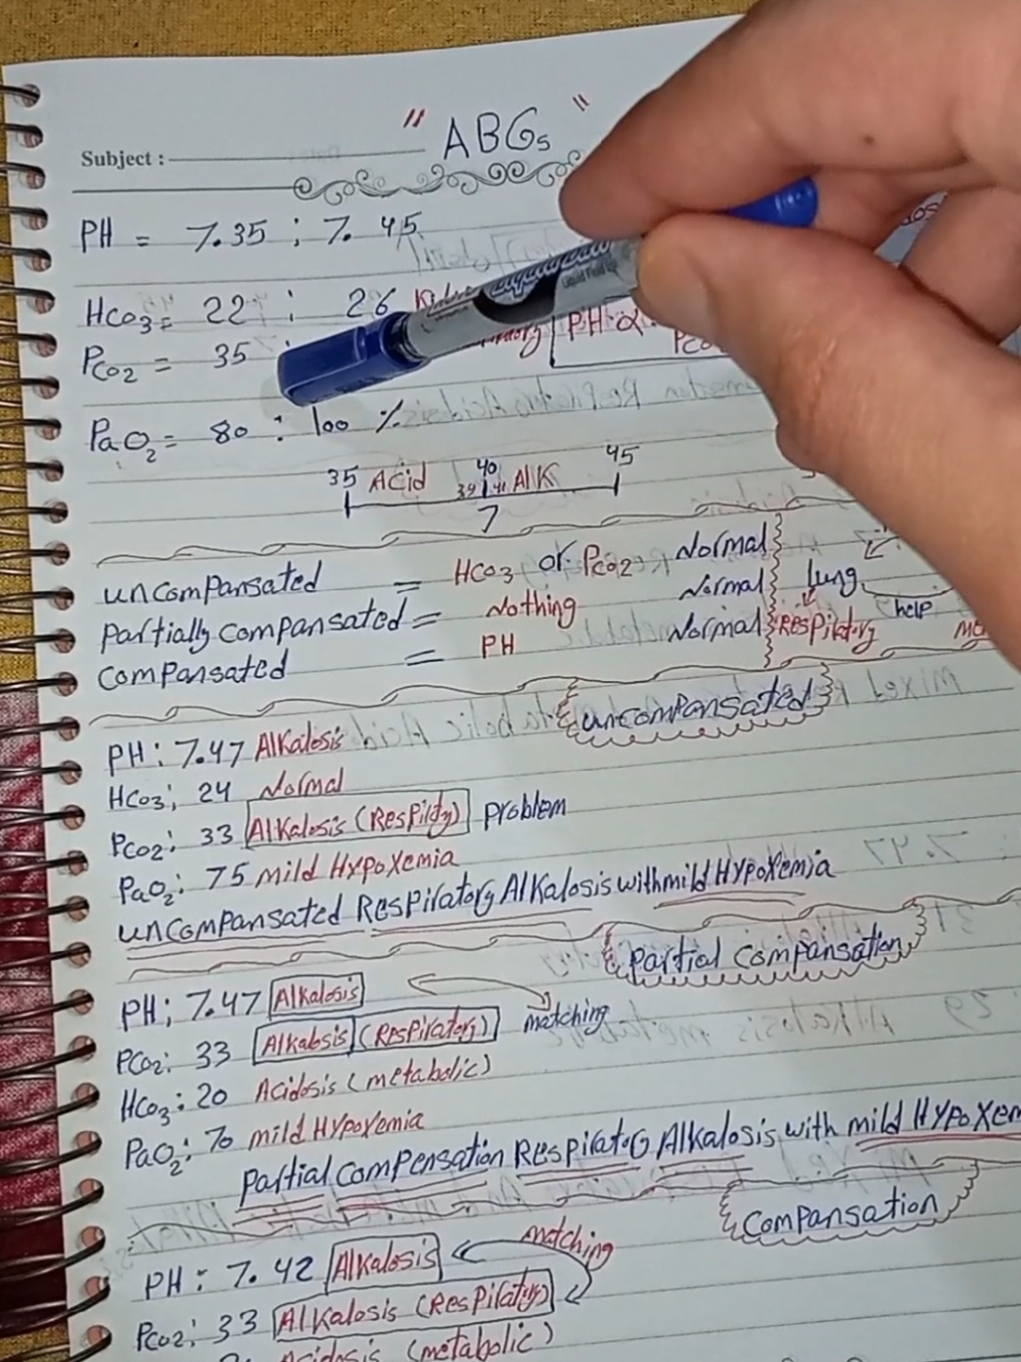 " ABGs "
Subject :
PH = 7.35 : 7.45
HCO3 = 22 : 26
PH α
PCO2 = 35
PaO2 = 80 : 100 %
35 Acid 40 45
39 41 AlK
7
uncompansated = HCO3 or PCO2 Normal
Partially compansated = Nothing Normal
compansated = PH Normal
lung
help
Respiratory
uncompansated
PH : 7.47 Alkalosis
HCO3 : 24 Normal
PCO2 : 33 Alkalosis (Respilaty) problem
PaO2 : 75 mild Hypoxemia
uncompansated Respilatory Alkalosis with mild Hypoxemia
Partial compansation
PH : 7.47 Alkalosis
matching
PCO2 : 33 Alkalosis (Respiratory)
HCO3 : 20 Acidosis (metabolic)
PaO2 : 70 mild Hypoxemia
Partial compensation Respilatory Alkalosis with mild Hypoxem
Compansation
PH : 7.42 Alkalosis matching
PCO2 : 33 Alkalosis (Respilatory)
Acidosis (metabolic)